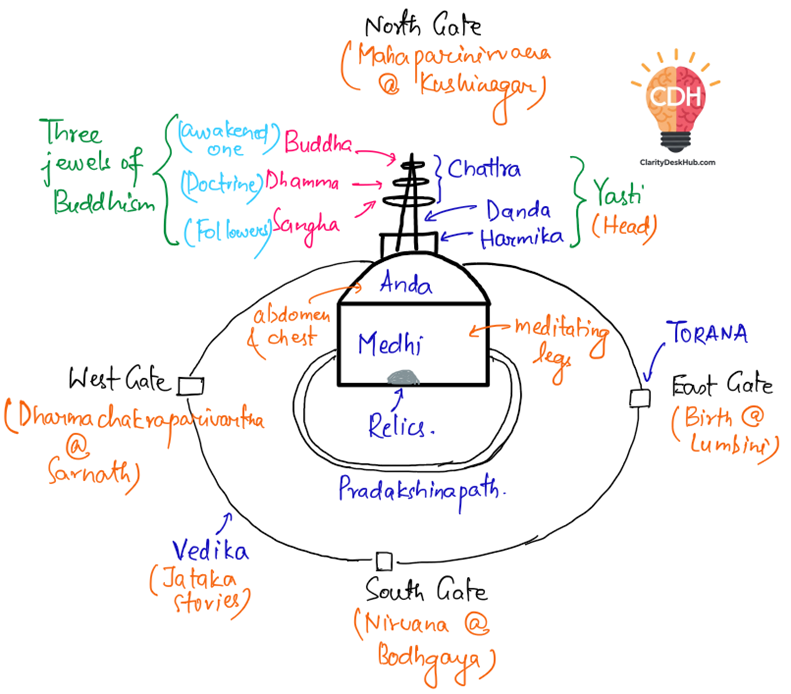 North Gate
(Mahaparinirvana
@ Kushinagar)
CDH
ClarityDeskHub.com
Three
jewels of
Buddhism
(awakened
one)
Buddha
(Doctrine) Dhamma
(Followers) Sangha
Chattra
Danda
Harmika
Yasti
(Head)
Anda
abdomen
& chest
Medhi
meditating
legs
Relics.
Pradakshinapath.
TORANA
West Gate
(Dharmachakraparivartha
@
Sarnath)
East Gate
(Birth @
Lumbini)
Vedika
(Jataka
stories)
South Gate
(Nirvana @
Bodhgaya)